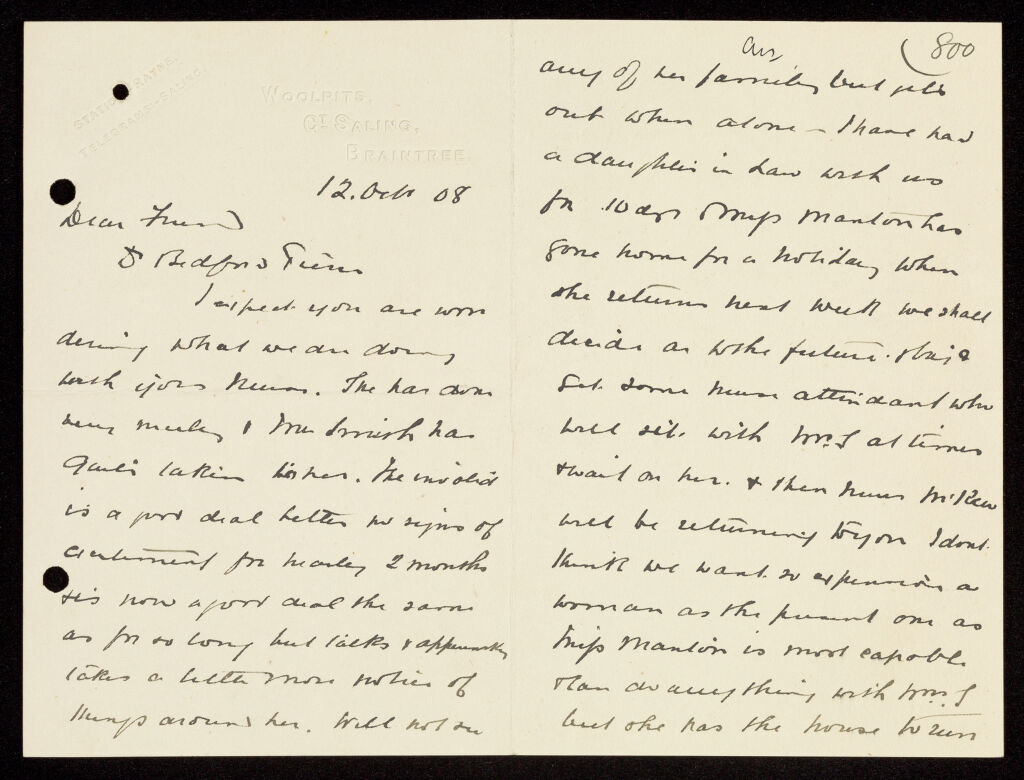 STATION, RAYNE.
TELEGRAMS, SALING.
WOOLPITS,
GT SALING,
BRAINTREE.
12. Oct 08
Dear Friend
Dr Bedford Pierce
I expect you are won
dering what we are doing
with your Nurse. She has done
very nicely & Mrs Smith has
quite taken to her. The invalid
is a good deal better no signs of
excitement for nearly 2 months
& is now a good deal the same
as for so long but talks & apparently
takes a little more notice of
things around her. Will not see
Ans,
800
any of her family but gets
out when alone – I have had
a daughter in Law with us
for 10 dys & Miss Manton has
gone home for a holiday when
she returns next week we shall
decide as to the future. & try &
get some nurse attendant who
will sit with Mrs. S at times
& wait on her. & then Nurse McKew
will be returning to you I dont
think we want so expensive a
woman as the present one as
Miss Manton is most capable
& can do anything with Mrs. S
but she has the house to run